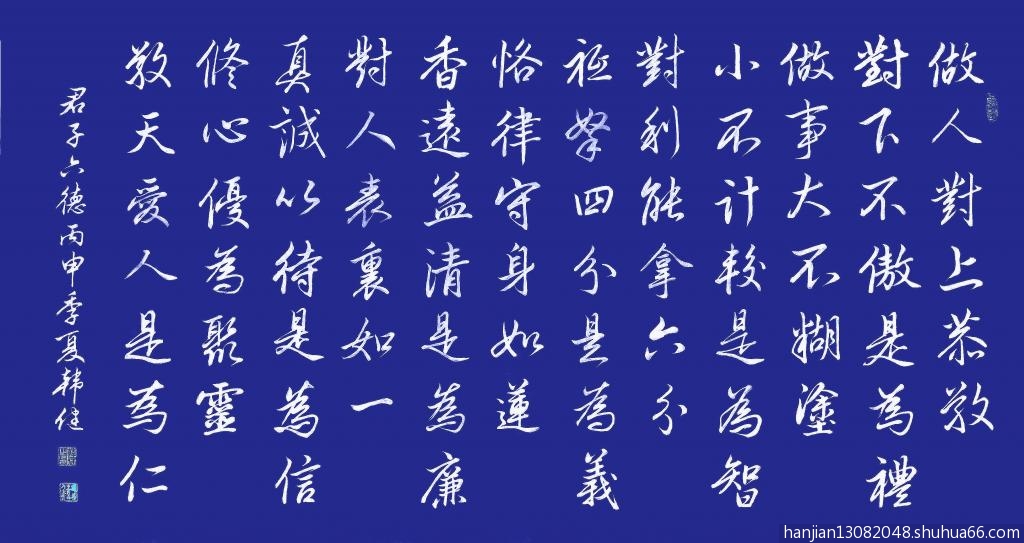 做人對上恭敬
對下不傲是為禮
做事大不糊塗
小不計較是為智
對利能拿六分
祗拏四分是為義
恪律守身如蓮
香遠益清是為廉
對人表裏如一
真誠以待是為信
修心優為聚靈
敬天愛人是為仁
君子六德丙申季夏韓健
hanjian13082048.shuhua66.com